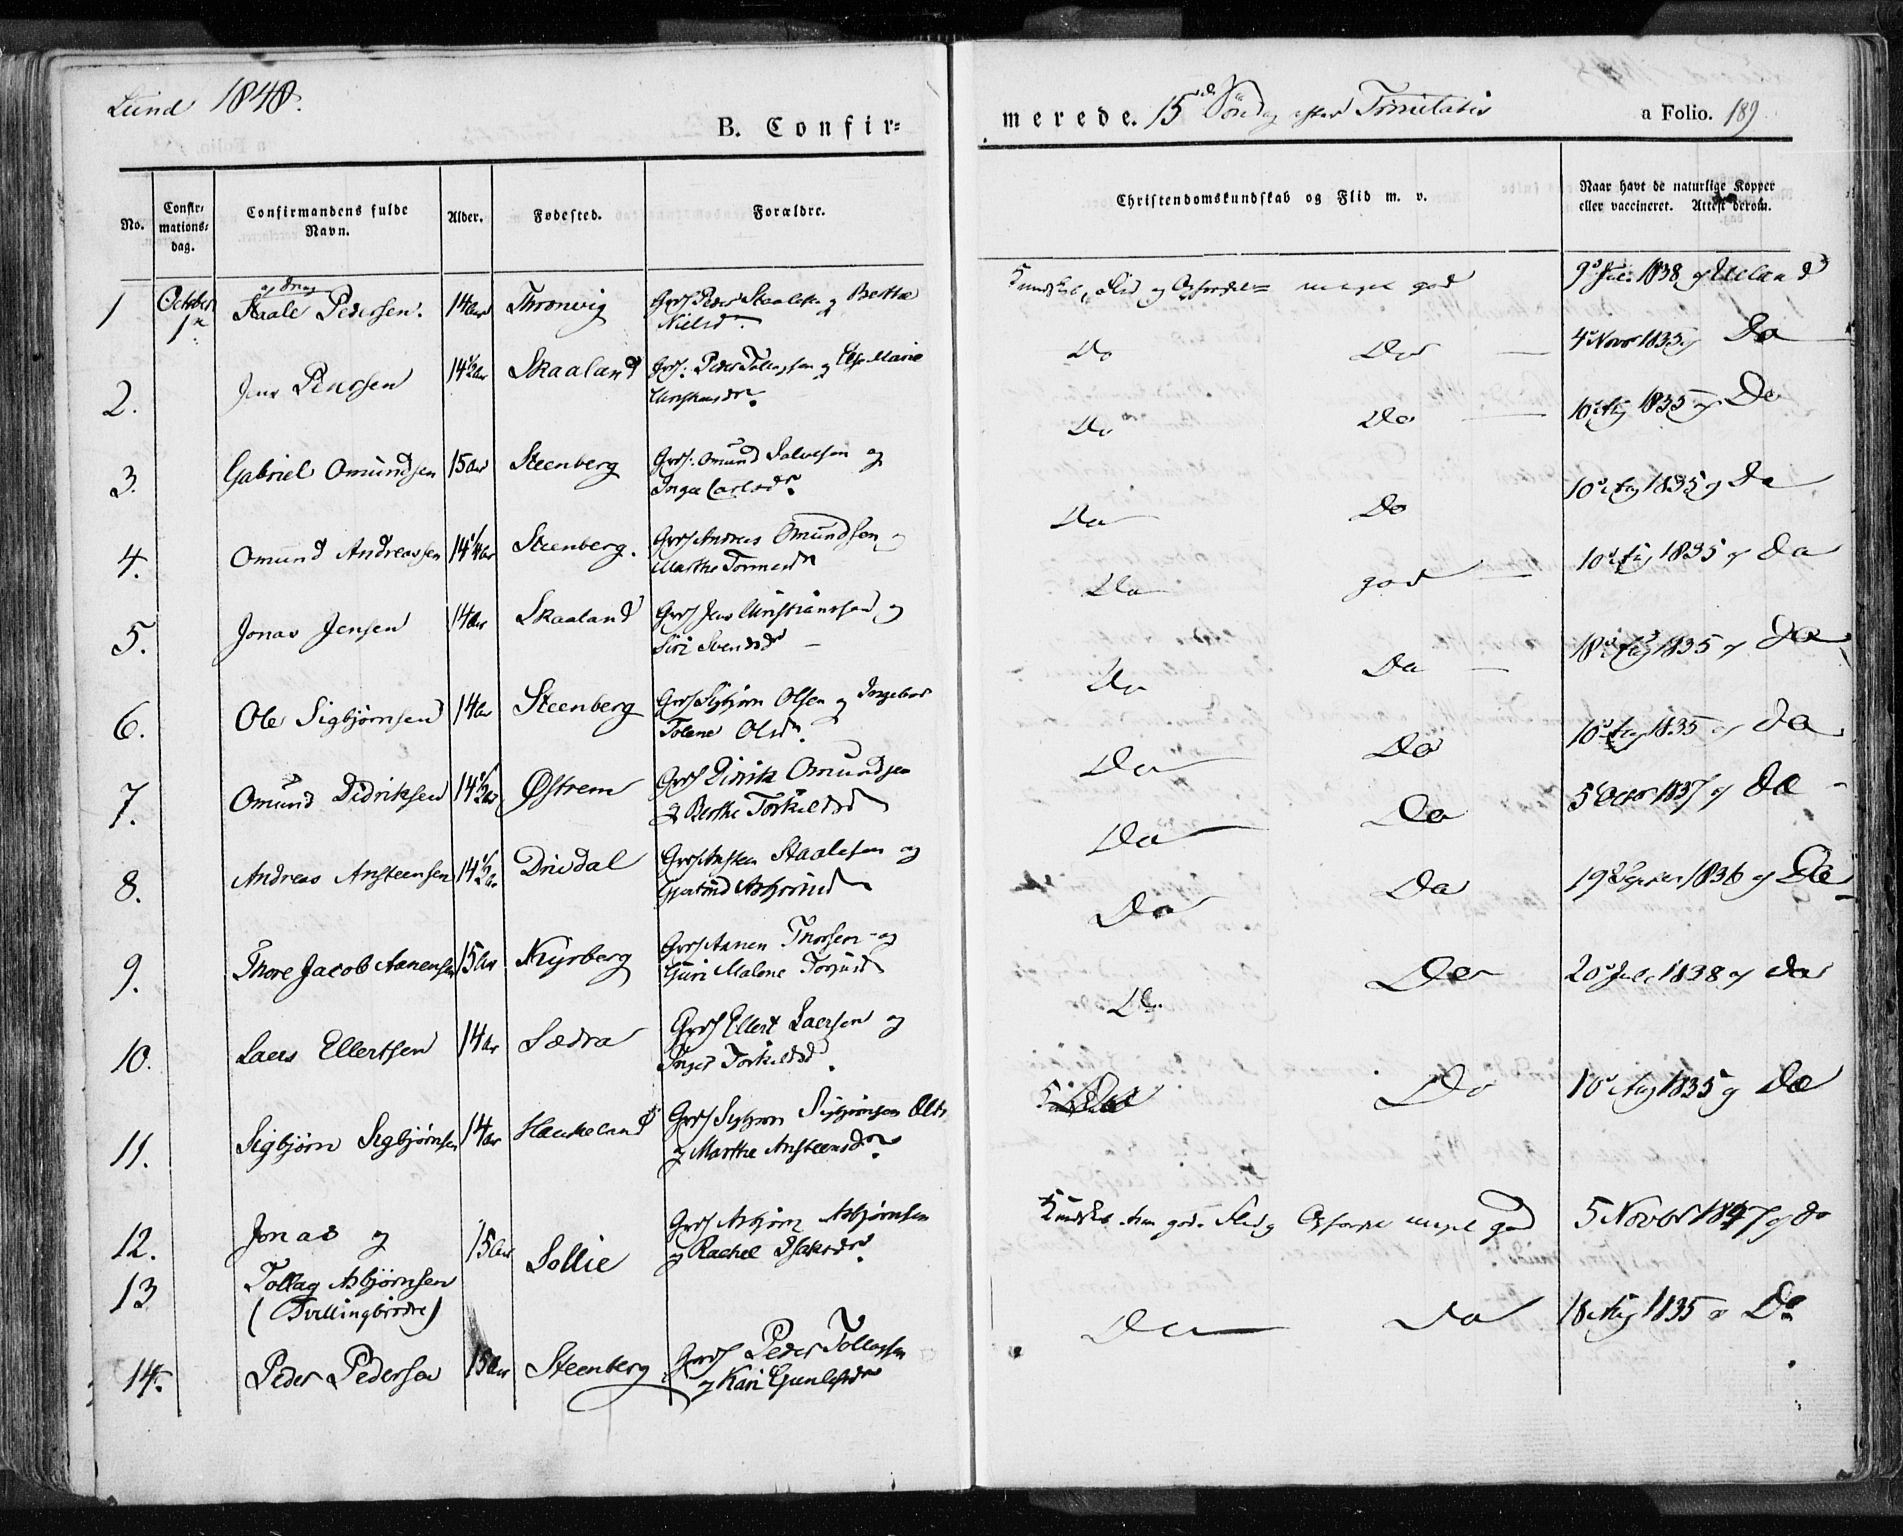 Lund 1848.
B. Confir=
No.
Confir-
mations-
dag.
Confirmandens fulde
Navn.
Alder.
Fødested.
Forældre.
1 October 1te af Dreng Staale Pedersen. 14 Aar Thronvig Grds Peder Staalesen og Berthe
Nielsdr.
2. Jens Pedersen 14½ Aar Skaaland Grds. Peder Tollagsen og Else Marie
Christensdr.
3. Gabriel Omundsen 15 Aar Steenberg Grds. Omund Salvesen og
Inger Carlsdr.
4. Omund Andreassen 14¼ Aar Steenberg. Grds Andreas Omundsen og
Marthe Tormodsdr
5. Jonas Jensen 14 Aar Skaaland Grds Jens Christianssen og
Siri Svendsdr
6. Ole Sigbjørnsen 14 Aar Steenberg Grds Sigbjørn Olsen og Ingebor
Tolene Olsdr.
7. Omund Didriksen 14½ Aar Østrem Grds Didrik Omundsen
og Berthe Torkildsd
8. Andreas Ansteensen 14½ Aar Drivdal Grds Ansten Staalesen og
Gjertrud Asbjørnsd
9. Thore Jacob Aanensen 15 Aar Nyrberg Grds Aanen Thorsen og
Guri Malene Torjusd
10. Laers Ellertsen 14 Aar Sædra Grds Ellert Laersen og
Inger Torkildsd.
11. Sigbjørn Sigbjørnsen 14 Aar Haukeland Grds Sigbjørn Sigbjørnsen
og Marthe Ansteensdr.
12. Jonas og 15 Aar Sollie Grds Asbjørn Asbjørnsen
og Rachel Isaksdr.
13 Tollag Asbjørnsen
(Tvillingbrødre)
14. Peder Pedersen 15 Aar Steenberg Grds Peder Tollagsen
og Kari Gunlefsdr
merede. 15de Søndag efter Trinitatis
a Folio. 189
Christendomskundskab og Flid m. v.
Naar havt de naturlige Kopper
eller vaccineret. Attest derom.
Kundskab, Flid og Opførsel meget god 9de Juli 1838 af Ueland
Do Do 4de Novbr 1835 af Do
Do Do 10de Aug 1835 af Do
Do Do 10de Aug 1835 af Do
Do god 10de Aug 1835 af Do
Do Do 18de Aug 1835 af Do
Do Do 10de Aug 1835 af Do
Do Do 5 Octbr 1837 af Do
Do Do 19de Septber 1836 af Do
Do Do 20de Juli 1838 af Do
Do 10de Aug 1835 af Do
Kundskab god. Flid og Opførsel meget god 5 Novbr 1847 af do
Do Do 18 Aug 1835 af Do